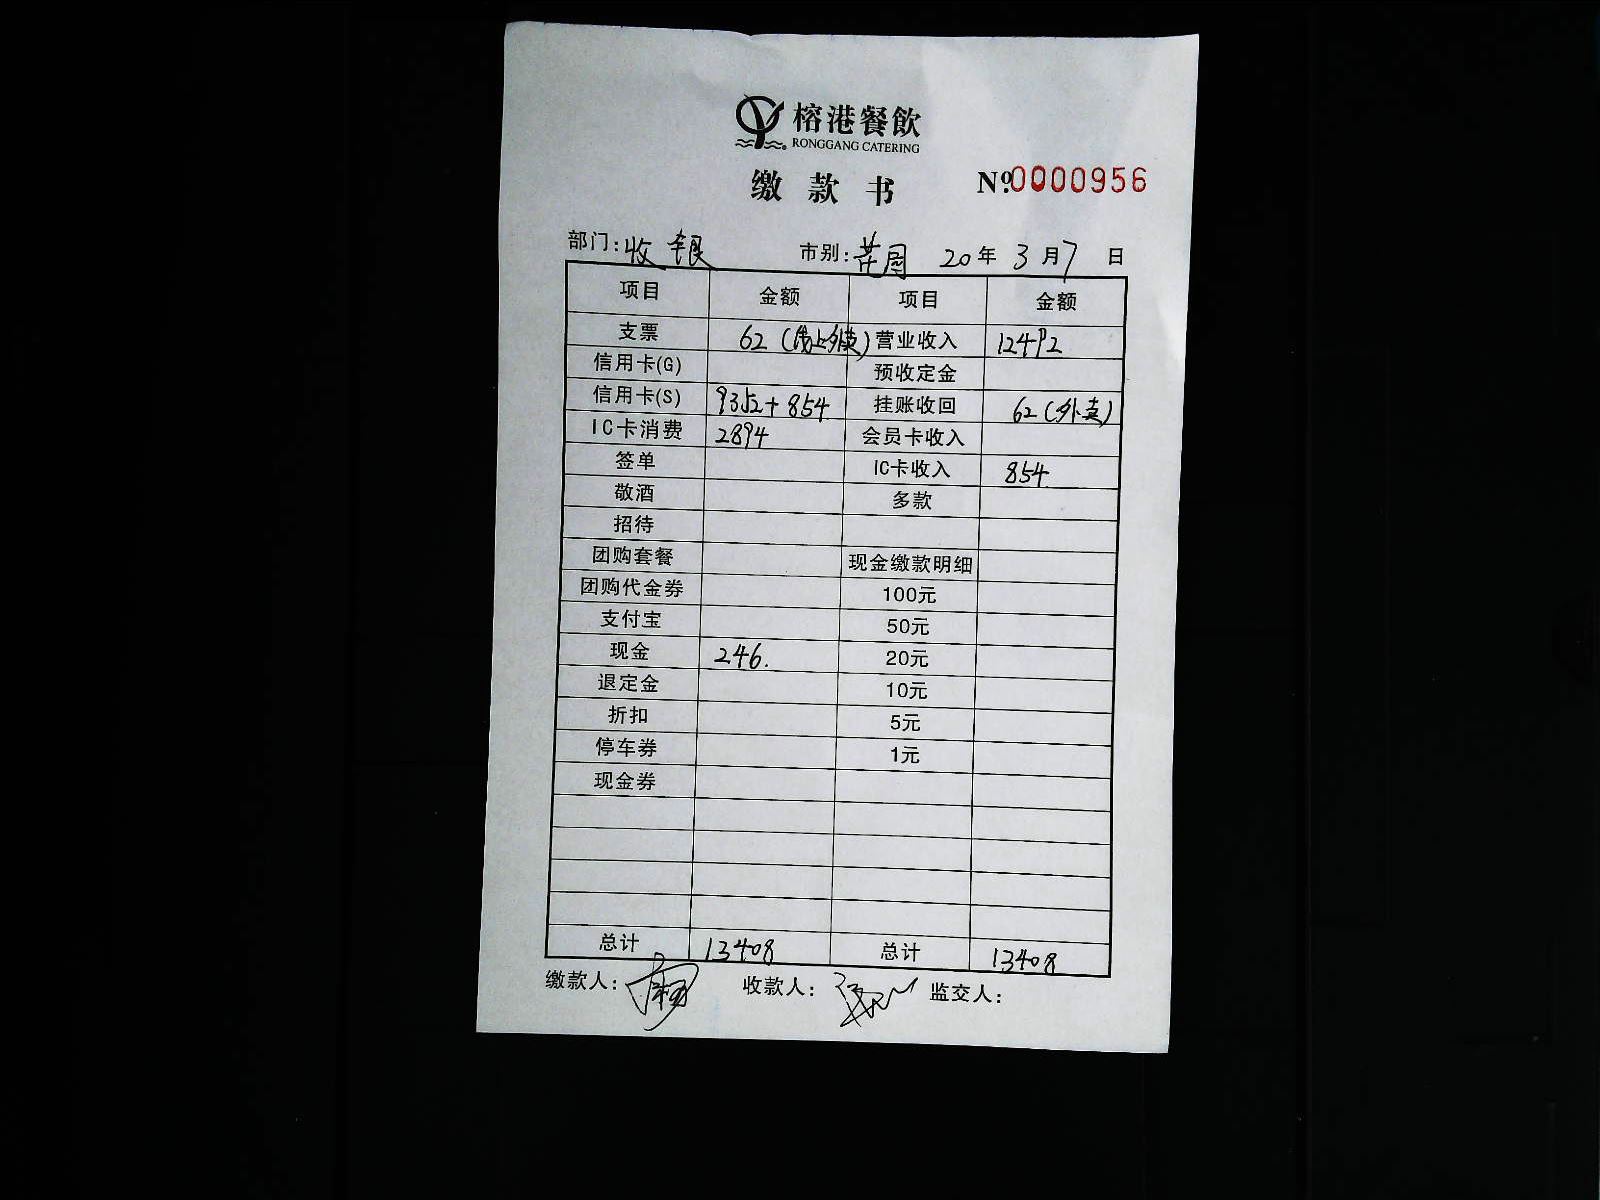 榕港餐飲
RONGGANG CATERING
缴款书 №0000956
部门:收银 市别: 20年3月7日
项目 金额 项目 金额
支票 62(线上外卖) 营业收入 12492
信用卡(G) 预收定金
信用卡(S) 9352+854 挂账收回 62(外卖)
IC卡消费 2894 会员卡收入
签单 IC卡收入 854
敬酒 多款
招待
团购套餐 现金缴款明细
团购代金券 100元
支付宝 50元
现金 246. 20元
退定金 10元
折扣 5元
停车券 1元
现金券
总计 13408 总计 13408
缴款人: 收款人: 监交人: